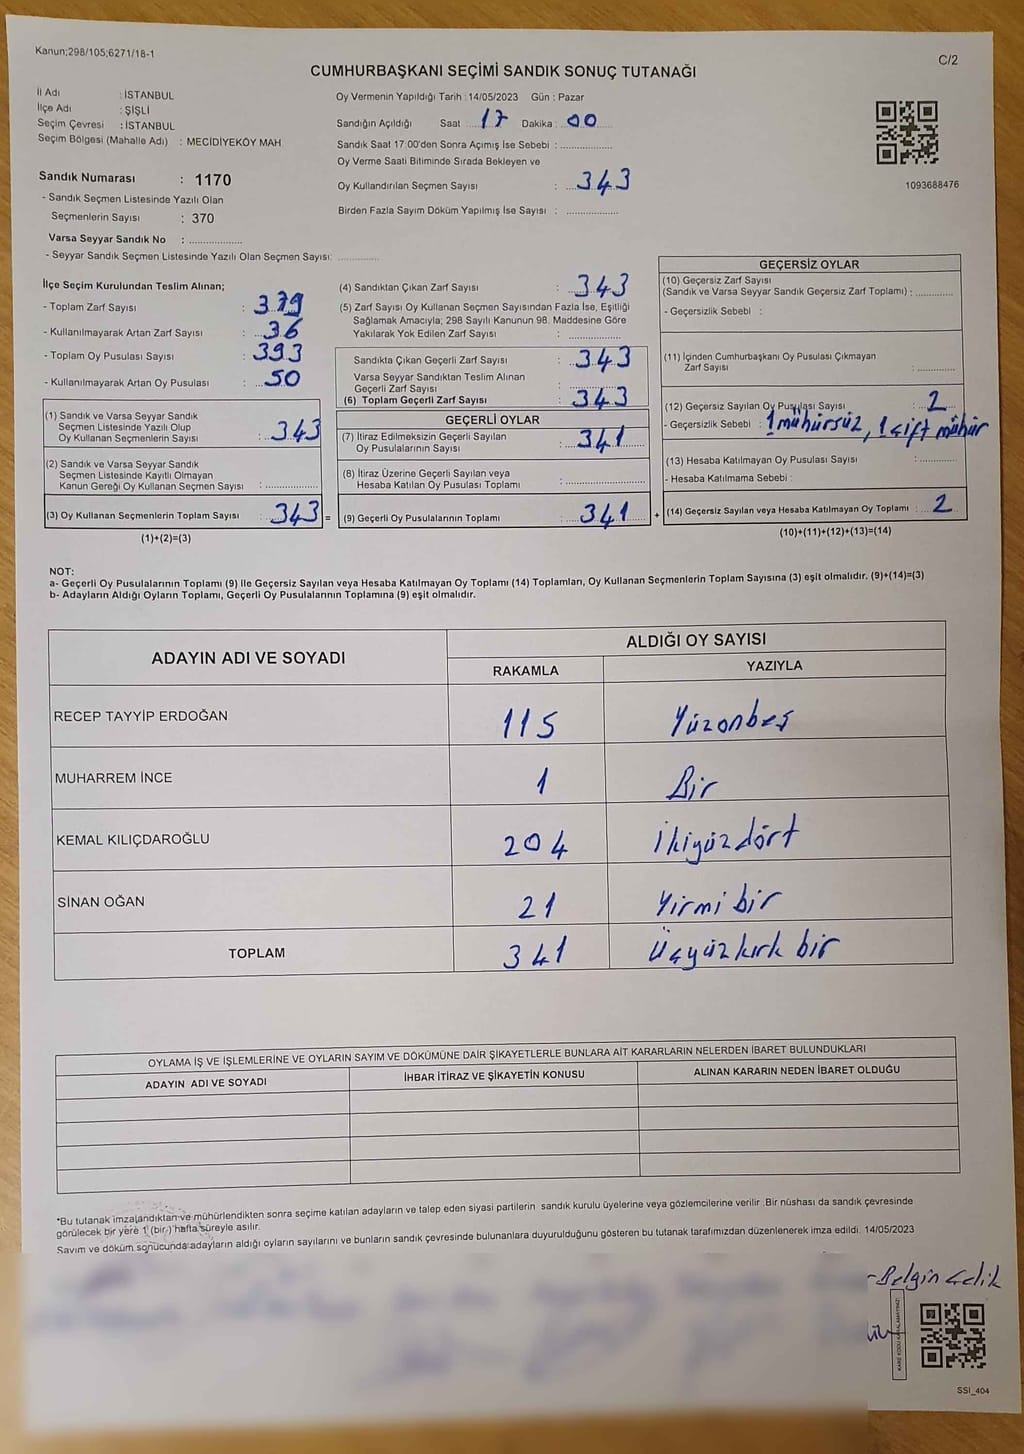 Kanun;298/105;6271/18-1
C/2
CUMHURBAŞKANI SEÇİMİ SANDIK SONUÇ TUTANAĞI
İl Adı : İSTANBUL
İlçe Adı : ŞİŞLİ
Seçim Çevresi : İSTANBUL
Seçim Bölgesi (Mahalle Adı) : MECİDİYEKÖY MAH
Sandık Numarası : 1170
- Sandık Seçmen Listesinde Yazılı Olan
Seçmenlerin Sayısı : 370
Varsa Seyyar Sandık No : ...................
- Seyyar Sandık Seçmen Listesinde Yazılı Olan Seçmen Sayısı: ..............
Oy Vermenin Yapıldığı Tarih : 14/05/2023 Gün : Pazar
Sandığın Açıldığı Saat : 17 Dakika : 00
Sandık Saat 17:00'den Sonra Açımış İse Sebebi : ...................
Oy Verme Saati Bitiminde Sırada Bekleyen ve
Oy Kullandırılan Seçmen Sayısı : 343
Birden Fazla Sayım Döküm Yapılmış İse Sayısı : ...................
1093688476
İlçe Seçim Kurulundan Teslim Alınan;
- Toplam Zarf Sayısı : 379
- Kullanılmayarak Artan Zarf Sayısı : 36
- Toplam Oy Pusulası Sayısı : 393
- Kullanılmayarak Artan Oy Pusulası : 50
(1) Sandık ve Varsa Seyyar Sandık
Seçmen Listesinde Yazılı Olup
Oy Kullanan Seçmenlerin Sayısı : 343
(2) Sandık ve Varsa Seyyar Sandık
Seçmen Listesinde Kayıtlı Olmayan
Kanun Gereği Oy Kullanan Seçmen Sayısı : ...................
(3) Oy Kullanan Seçmenlerin Toplam Sayısı : 343 =
(1)+(2)=(3)
(4) Sandıktan Çıkan Zarf Sayısı : 343
(5) Zarf Sayısı Oy Kullanan Seçmen Sayısından Fazla İse, Eşitliği
Sağlamak Amacıyla; 298 Sayılı Kanunun 98. Maddesine Göre
Yakılarak Yok Edilen Zarf Sayısı : ...................
Sandıkta Çıkan Geçerli Zarf Sayısı : 343
Varsa Seyyar Sandıktan Teslim Alınan
Geçerli Zarf Sayısı : ...................
(6) Toplam Geçerli Zarf Sayısı : 343
GEÇERLİ OYLAR
(7) İtiraz Edilmeksizin Geçerli Sayılan
Oy Pusulalarının Sayısı : 341
(8) İtiraz Üzerine Geçerli Sayılan veya
Hesaba Katılan Oy Pusulası Toplamı : ...................
(9) Geçerli Oy Pusulalarının Toplamı : 341 +
GEÇERSİZ OYLAR
(10) Geçersiz Zarf Sayısı
(Sandık ve Varsa Seyyar Sandık Geçersiz Zarf Toplamı) : ..............
- Geçersizlik Sebebi :
(11) İçinden Cumhurbaşkanı Oy Pusulası Çıkmayan
Zarf Sayısı : ..............
(12) Geçersiz Sayılan Oy Pusulası Sayısı : 2
- Geçersizlik Sebebi : 1 mühürsüz, 1 çift mühür
(13) Hesaba Katılmayan Oy Pusulası Sayısı : ..............
- Hesaba Katılmama Sebebi :
(14) Geçersiz Sayılan veya Hesaba Katılmayan Oy Toplamı : 2
(10)+(11)+(12)+(13)=(14)
NOT:
a- Geçerli Oy Pusulalarının Toplamı (9) ile Geçersiz Sayılan veya Hesaba Katılmayan Oy Toplamı (14) Toplamları, Oy Kullanan Seçmenlerin Toplam Sayısına (3) eşit olmalıdır. (9)+(14)=(3)
b- Adayların Aldığı Oyların Toplamı, Geçerli Oy Pusulalarının Toplamına (9) eşit olmalıdır.
ADAYIN ADI VE SOYADI ALDIĞI OY SAYISI
RAKAMLA YAZIYLA
RECEP TAYYİP ERDOĞAN 115 Yüzonbeş
MUHARREM İNCE 1 Bir
KEMAL KILIÇDAROĞLU 204 İkiyüzdört
SİNAN OĞAN 21 Yirmi bir
TOPLAM 341 Üçyüzkırk bir
OYLAMA İŞ VE İŞLEMLERİNE VE OYLARIN SAYIM VE DÖKÜMÜNE DAİR ŞİKAYETLERLE BUNLARA AİT KARARLARIN NELERDEN İBARET BULUNDUKLARI
ADAYIN ADI VE SOYADI İHBAR İTİRAZ VE ŞİKAYETİN KONUSU ALINAN KARARIN NEDEN İBARET OLDUĞU
*Bu tutanak imzalandıktan ve mühürlendikten sonra seçime katılan adayların ve talep eden siyasi partilerin sandık kurulu üyelerine veya gözlemcilerine verilir .Bir nüshası da sandık çevresinde
görülecek bir yere 1 (bir ) hafta süreyle asılır.
Sayım ve döküm sonucunda adayların aldığı oyların sayılarını ve bunların sandık çevresinde bulunanlara duyurulduğunu gösteren bu tutanak tarafımızdan düzenlenerek imza edildi. 14/05/2023
-Belgin Çelik
KARE KODU KARALAMAYINIZ!
SSI_404